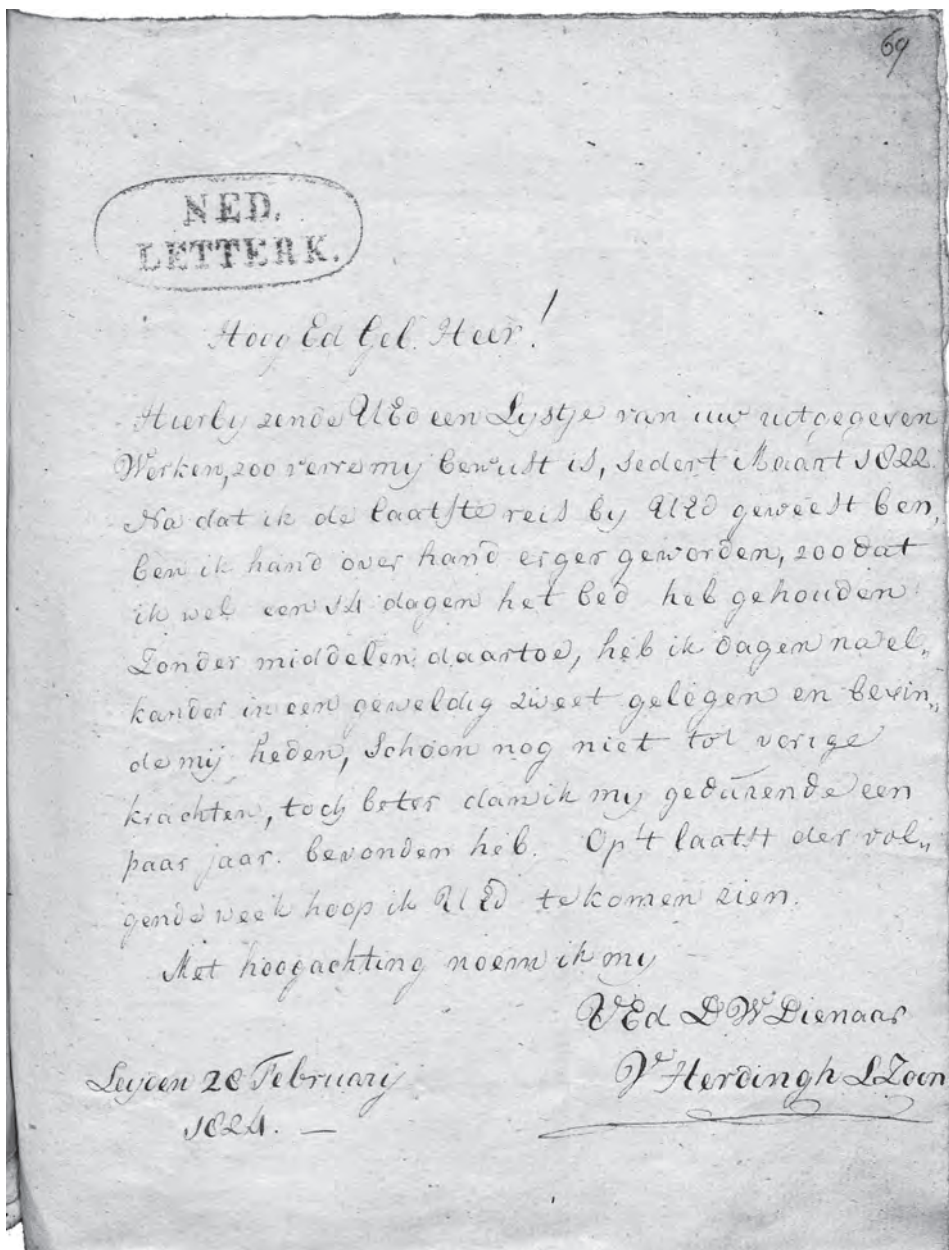 69
NED.
LETTERK.
Hoog Ed Geb. Heer!
Hierby zende UEd een Lystje van uw uitgegeven
Werken, zoo verre my bewust is, sedert Maart 1822.
Na dat ik de laatste reis by UEd geweest ben,
ben ik hand over hand erger geworden, zoo dat
ik wel een 14 dagen het bed heb gehouden.
Zonder middelen daartoe, heb ik dagen na el„
kander in een geweldig zweet gelegen en bevin„
de mij heden, schoon nog niet tot vorige
krachten, toch beter dan ik my gedurende een
paar jaar bevonden heb. Op 't laatst der vol„
gende week hoop ik UEd te komen zien.
Met hoogachting noem ik my
UEd DW Dienaar
Herdingh & Zoon
Leyden 28 February
1824. —